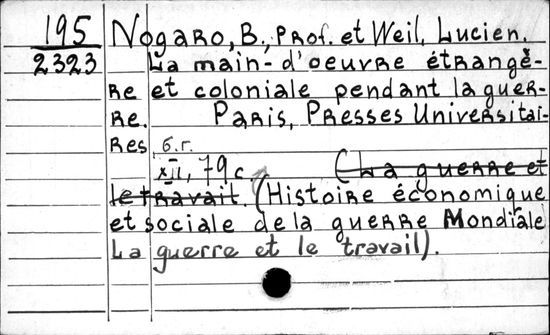 195 Nogaro, B., Prof. et Weil, Lucien.
2323 La main-d'oeuvre étrangè-
re et coloniale pendant la guer-
re. Paris, Presses Universitai-
res б.г.
XII, 79 c. (La guerre et
le travail. (Histoire économique
et sociale de la guerre Mondiale
La guerre et le travail).